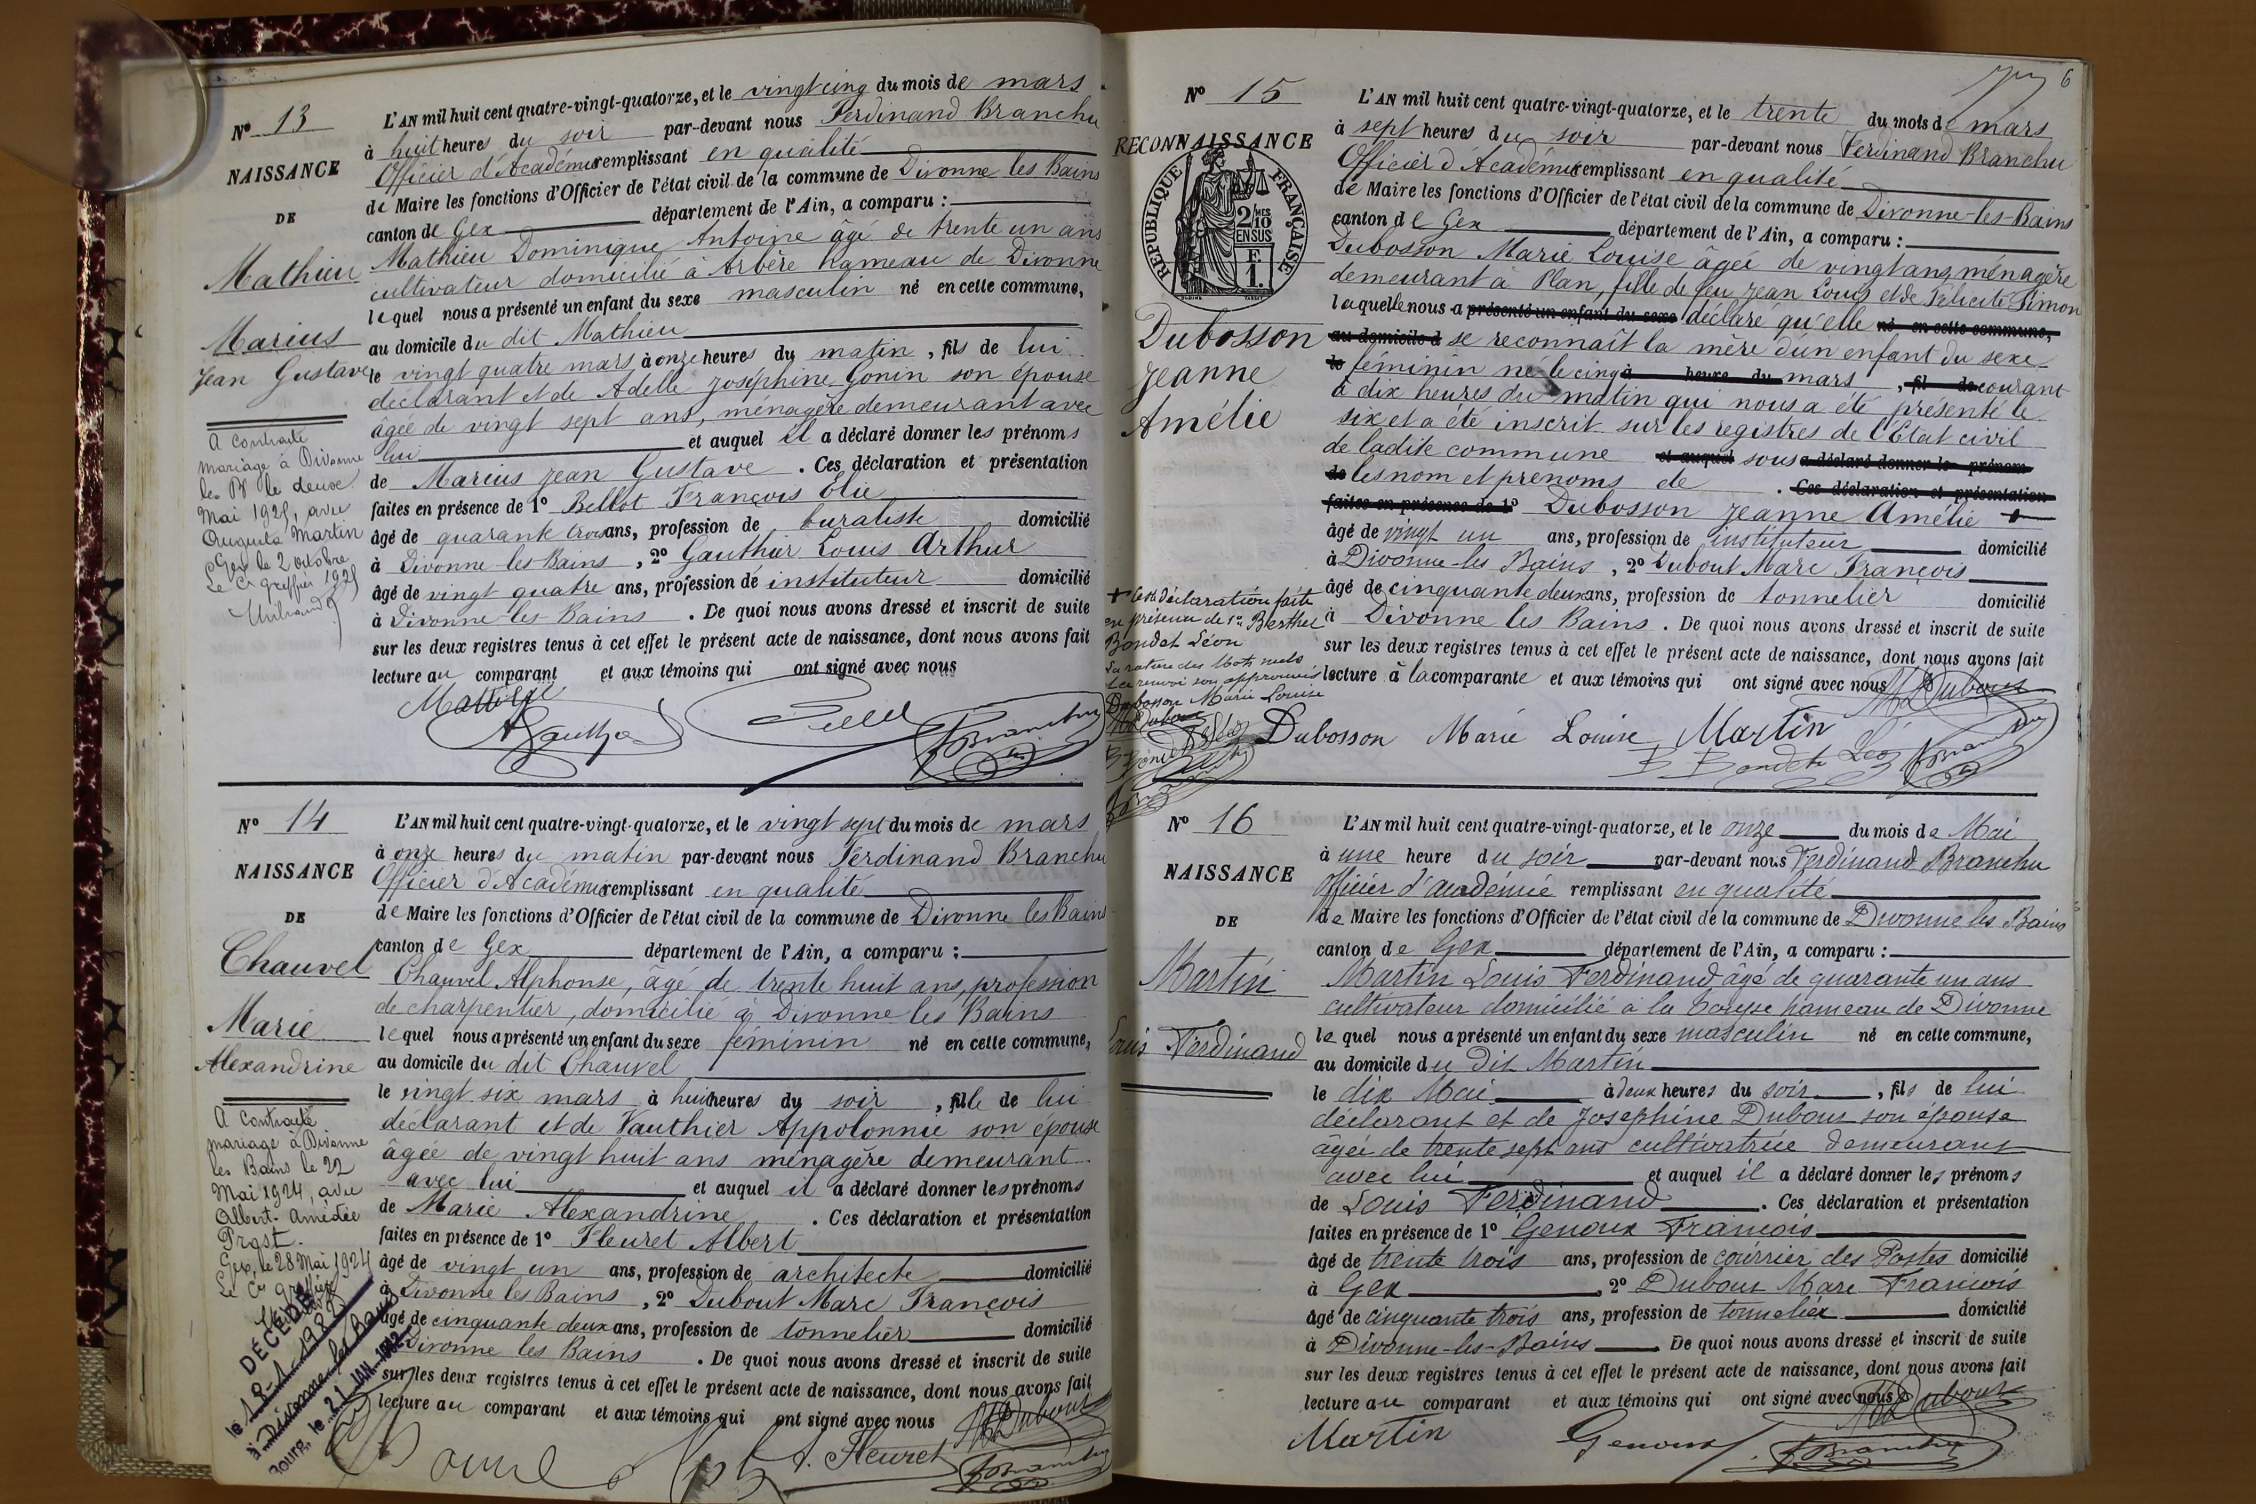 N° 13
NAISSANCE
DE
Mathieu
Marius
Jean Gustave
A contracté
mariage à Divonne
les Bs le deux
Mai 1925, avec
Augusta Martin
Gex le 2 octobre
Le Cr greffier 1925
L'AN mil huit cent quatre-vingt-quatorze, et le vingt cinq du mois de mars
à huit heures du soir par-devant nous Ferdinand Branchu
Officier d'Académie remplissant en qualité
de Maire les fonctions d'Officier de l'état civil de la commune de Divonne les Bains
canton de Gex département de l'Ain, a comparu :
Mathieu Dominique Antoine âgé de trente un ans
cultivateur domicilié à Arbère hameau de Divonne
lequel nous a présenté un enfant du sexe masculin né en cette commune,
au domicile du dit Mathieu
le vingt quatre mars à onze heures du matin, fils de lui
déclarant et de Adelle Joséphine Gonin son épouse
âgée de vingt sept ans, ménagère demeurant avec
lui et auquel il a déclaré donner les prénoms
de Marius Jean Gustave. Ces déclaration et présentation
faites en présence de 1° Bellot François Elie
âgé de quarante trois ans, profession de buraliste domicilié
à Divonne-les-Bains, 2° Gauthier Louis Arthur
âgé de vingt quatre ans, profession de instituteur domicilié
à Divonne-les-Bains. De quoi nous avons dressé et inscrit de suite
sur les deux registres tenus à cet effet le présent acte de naissance, dont nous avons fait
lecture au comparant et aux témoins qui ont signé avec nous
N° 14
NAISSANCE
DE
Chauvel
Marie
Alexandrine
A contracté
mariage à Divonne
les Bains le 22
Mai 1924, avec
Albert-Amédée
Prost.
Gex, le 28 Mai 1924
Le Cr greffier
DÉCÉDÉ
le 18-1-1982
à Divonne les Bains
Bourg, le 21 JAN. 1982
L'AN mil huit cent quatre-vingt-quatorze, et le vingt sept du mois de mars
à onze heures du matin par-devant nous Ferdinand Branchu
Officier d'Académie remplissant en qualité
de Maire les fonctions d'Officier de l'état civil de la commune de Divonne les Bains
canton de Gex département de l'Ain, a comparu :
Chauvel Alphonse, âgé de trente huit ans, profession
de charpentier, domicilié à Divonne-les Bains
lequel nous a présenté un enfant du sexe féminin né en cette commune,
au domicile du dit Chauvel
le vingt six mars à huit heures du soir, fille de lui
déclarant et de Vauthier Appolonnie son épouse
âgée de vingt huit ans ménagère demeurant
avec lui et auquel il a déclaré donner les prénoms
de Marie Alexandrine. Ces déclaration et présentation
faites en présence de 1° Fleuret Albert
âgé de vingt un ans, profession de architecte domicilié
à Divonne les Bains, 2° Dubout Marc François
âgé de cinquante deux ans, profession de tonnelier domicilié
Divonne les Bains. De quoi nous avons dressé et inscrit de suite
sur les deux registres tenus à cet effet le présent acte de naissance, dont nous avons fait
lecture au comparant et aux témoins qui ont signé avec nous
A. Fleuret
6
N° 15
RECONNAISSANCE
RÉPUBLIQUE FRANÇAISE
2 MES
10
EN SUS
F.
1.
Dubosson
Jeanne
Amélie
+ Cette déclaration faite
en présence de 1° Berthet
Bondet Léon
La rature des mots nuls
Le renvoi son approuvés
Dubosson Marie Louise
L'AN mil huit cent quatre-vingt-quatorze, et le trente du mois de mars
à sept heures du soir par-devant nous Ferdinand Branchu
Officier d'Académie remplissant en qualité
de Maire les fonctions d'Officier de l'état civil de la commune de Divonne-les-Bains
canton de Gex département de l'Ain, a comparu :
Dubosson Marie Louise âgée de vingt ans, ménagère
demeurant à Plan, fille de feu Jean Louis et de Félicité Simon
laquelle nous a présenté un enfant du sexe déclaré qu'elle né en cette commune,
au domicile d se reconnaît la mère d'un enfant du sexe
le féminin né le cinq à heure du mars, fil de courant
à dix heures du matin qui nous a été présenté le
six et a été inscrit sur les registres de l'Etat civil
de ladite commune et auquel sous a déclaré donner le prénom
de les nom et prénoms de. Ces déclaration et présentation
faites en présence de 1° Dubosson Jeanne Amélie +
âgé de vingt un ans, profession de instituteur domicilié
à Divonne-les Bains, 2° Dubout Marc François
âgé de cinquante deux ans, profession de tonnelier domicilié
à Divonne les Bains. De quoi nous avons dressé et inscrit de suite
sur les deux registres tenus à cet effet le présent acte de naissance, dont nous avons fait
lecture à la comparante et aux témoins qui ont signé avec nous
Dubosson Marie Louise Martin
N° 16
NAISSANCE
DE
Martin
Louis Ferdinand
L'AN mil huit cent quatre-vingt-quatorze, et le onze du mois de Mai
à une heure du soir par-devant nous Ferdinand Branchu
Officier d'académie remplissant en qualité
de Maire les fonctions d'Officier de l'état civil de la commune de Divonne les Bains
canton de Gex département de l'Ain, a comparu :
Martin Louis Ferdinand âgé de quarante un ans
cultivateur domicilié à la hameau de Divonne
lequel nous a présenté un enfant du sexe masculin né en cette commune,
au domicile du dit Martin
le dix Mai à deux heures du soir, fils de lui
déclarant et de Josephine Dubout son épouse
âgée de trente sept ans cultivatrice demeurant
avec lui et auquel il a déclaré donner les prénoms
de Louis Ferdinand. Ces déclaration et présentation
faites en présence de 1° Genoux François
âgé de trente trois ans, profession de courrier des Postes domicilié
à Gex, 2° Dubout Marc François
âgé de cinquante trois ans, profession de tonnelier domicilié
à Divonne-les-Bains. De quoi nous avons dressé et inscrit de suite
sur les deux registres tenus à cet effet le présent acte de naissance, dont nous avons fait
lecture au comparant et aux témoins qui ont signé avec nous
Martin Genoux